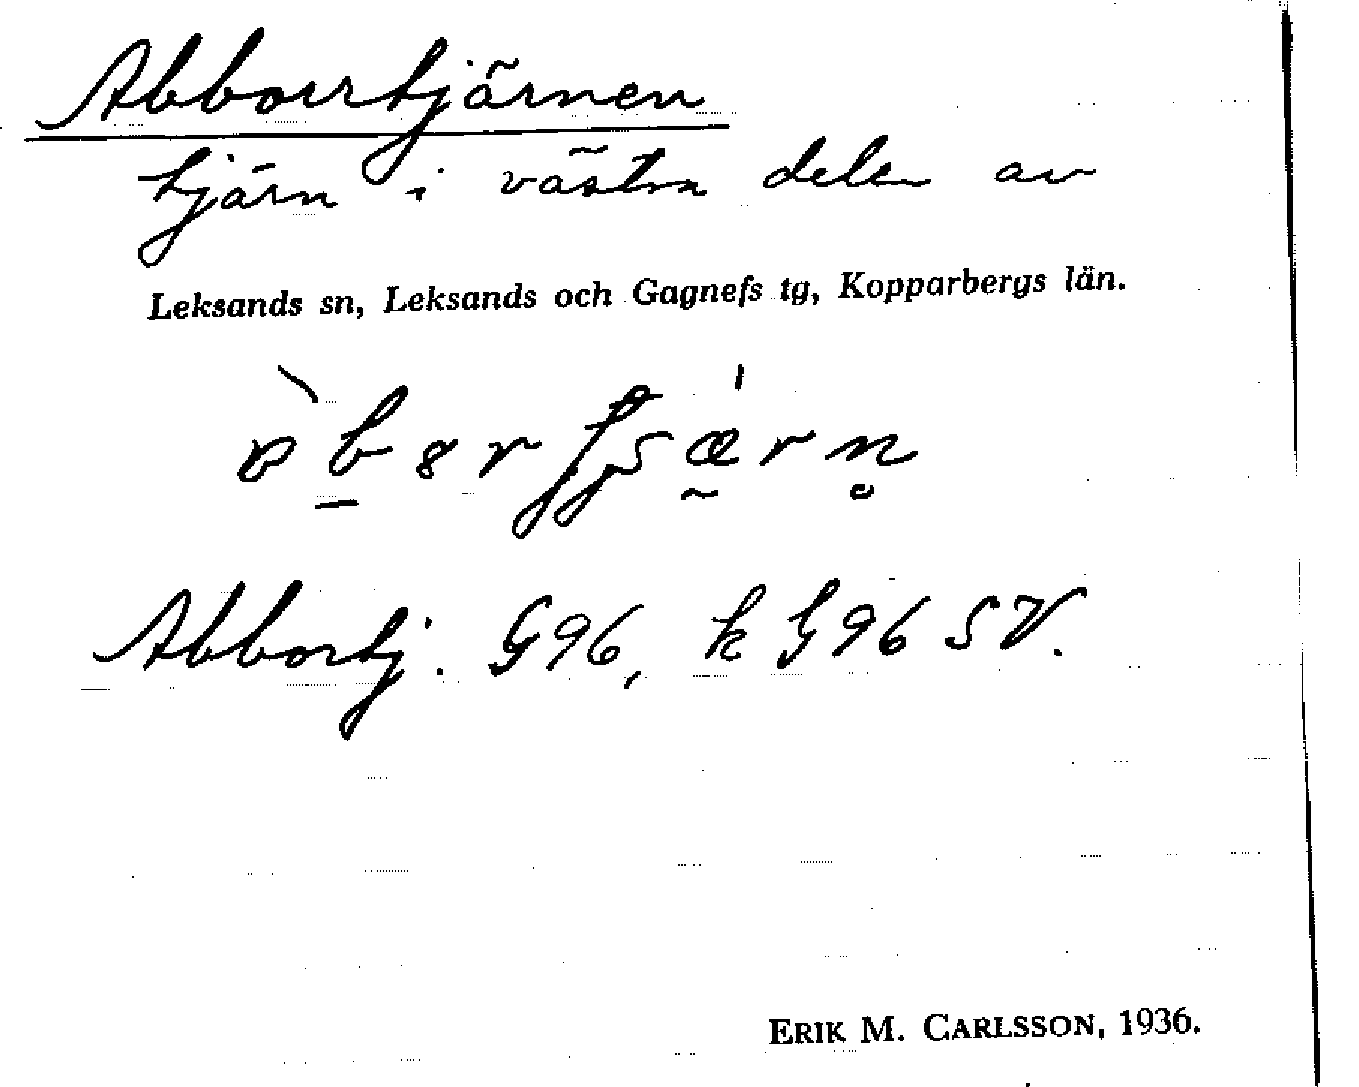 Abborrtjärnen
tjärn i västra delen av
Leksands sn, Leksands och Gagnefs tg, Kopparbergs län.
Abbortj. G96, k G96 SV.
ERIK M. CARLSSON, 1936.